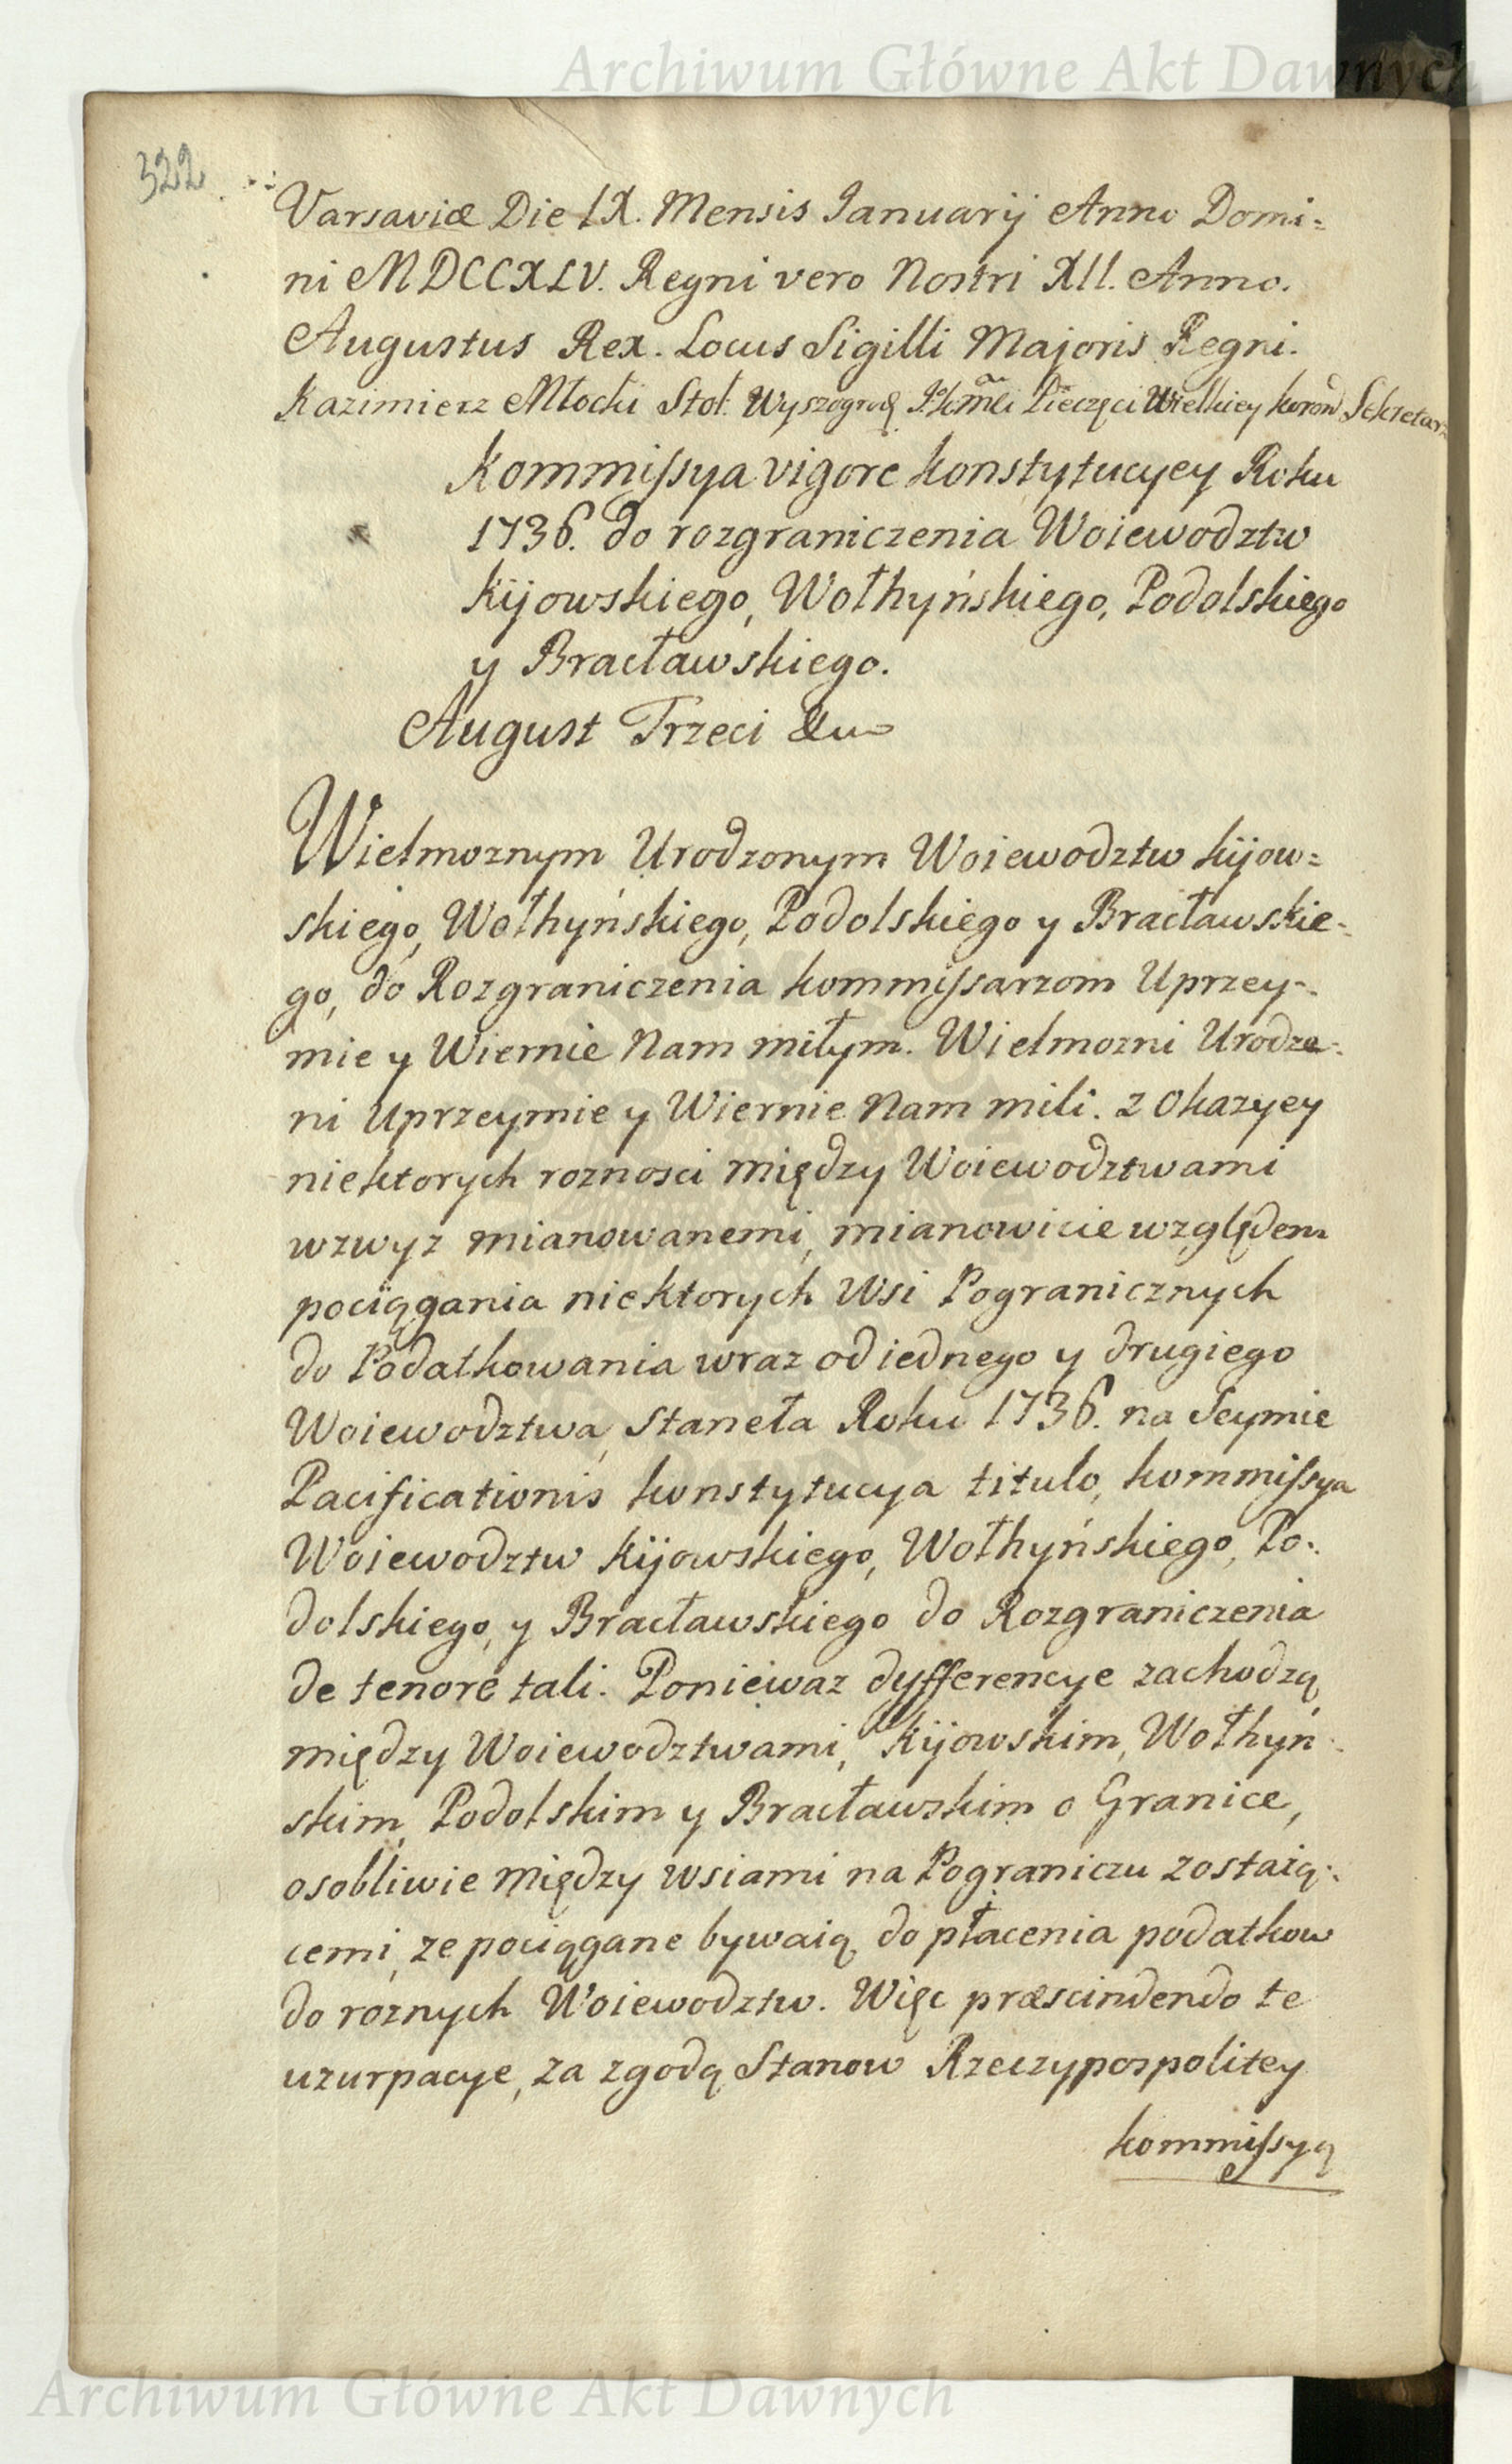 Archiwum Główne Akt Dawnych
322
Varsaviæ Die IX. Mensis Januarij Anno Domi=
ni MDCCXLV. Regni vero Nostri XII. Anno.
Augustus Rex. Locus Sigilli Majoris Regni.
Kazimierz Młocki Stol. Wyszogrodz Pieczęci Wielkiey Koron Sekretarz
Kommissya vigore Konstytucyey Roku
1736. do rozgraniczenia Woiewodztw
Kijowskiego, Wołhyńskiego, Podolskiego
y Bracławskiego.
August Trzeci &
Wielmoznym Urodzonym Woiewodztw Kijow=
skiego, Wołhyńskiego, Podolskiego y Bracławskie-
go, do Rozgraniczenia Kommissarzom Uprzey-
mie y Wiernie Nam miłym. Wielmozni Urodze-
ni Uprzeymie y Wiernie Nam mili. z Okazyey
niektorych roznosci między Woiewodztwami
wzwyz mianowanemi, mianowicie względem
pociągania niektorych Wsi Pogranicznych
do Podatkowania wraz od iednego y drugiego
Woiewodztwa, Staneła Roku 1736. na Seymie
Pacificationis Konstytucya titulo, Kommissya
Woiewodztw Kijowskiego, Wołhyńskiego, Po-
dolskiego, y Bracławskiego do Rozgraniczenia
de tenore tali. Poniewaz dyfferencye zachodzą
między Woiewodztwami, Kijowskim, Wołhyń-
skim, Podolskim y Bracławskim o Granice,
osobliwie między wsiami na Pograniczu zostaią-
cemi, ze pociągane bywaią do płacenia podatkow
do roznych Woiewodztw. Więc præscindendo te
uzurpacye, za zgodą Stanow Rzeczypospolitey
Kommissyą
Archiwum Główne Akt Dawnych